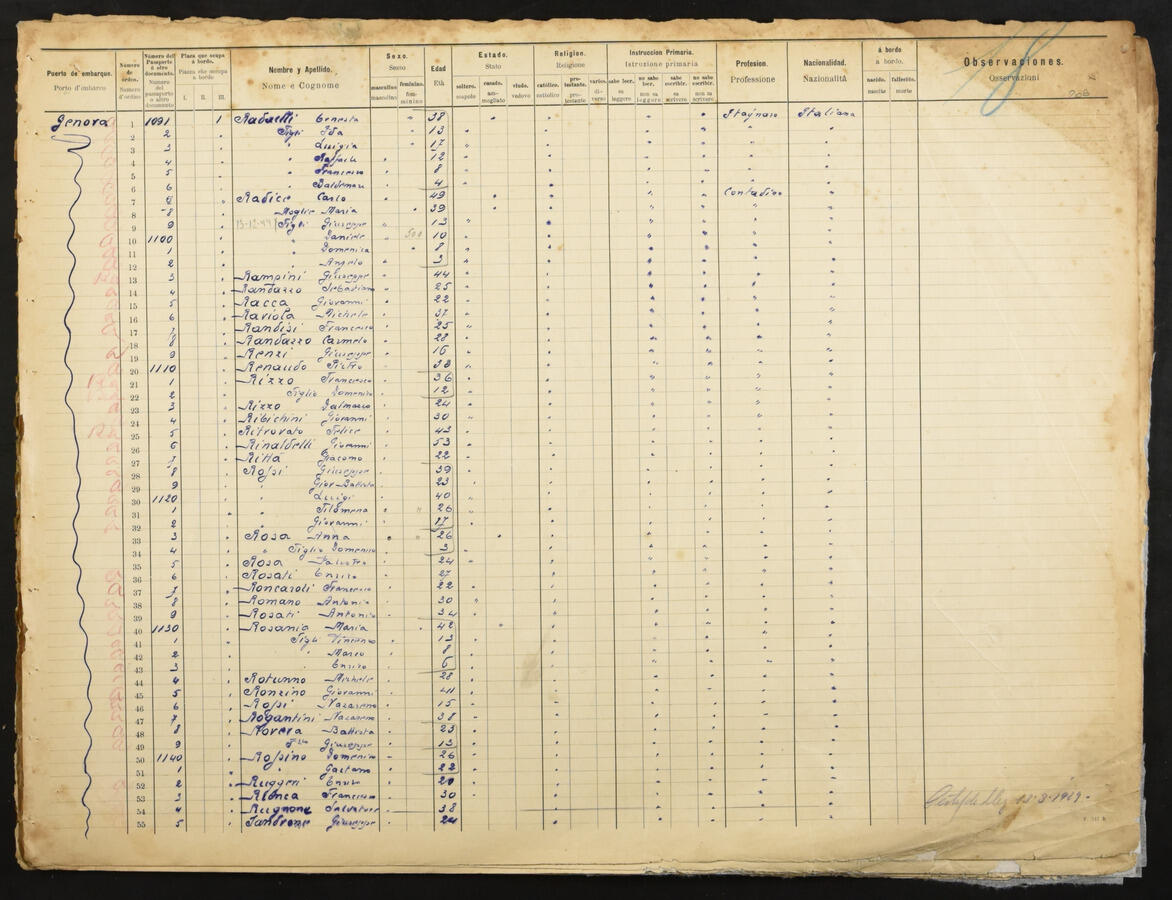 Puerto de embarque. Porto d'imbarco
Número de orden. Numero d'ordine
Número del Pasaporte ó otro documento. Numero del passaporto o altro documento
Plaza que ocupa á bordo. Piazza che occupa a bordo. I. II. III.
Nombre y Apellido. Nome e Cognome
Sexo. Sesso masculino mascolino feminino. femminino
Edad Età
Estado. Stato soltero. scapolo casado. ammogliato viudo. vedovo
Religion. Religione católico. cattolico protestante. protestante varios. diverso
Instruccion Primaria. Istruzione primaria sabe leer. sa leggere no sabe leer. non sa leggere sabe escribir. sa scrivere no sabe escribir. non sa scrivere
Profesion. Professione
Nacionalidad. Nazionalità
á bordo a bordo. nacido. nascite fallecido. morte
Observaciones. Osservazioni
18
Genova 1 1091 1 Ernesta 38 Italiana
2 2 Figli Ida 13 "
3 3 " Luigia 17 "
4 4 " Raffaele 12 "
5 5 " Francesco 8 "
6 6 " 4 "
7 7 Radice Carlo 49 Contadino "
8 8 Moglie Maria 39 " "
9 9 13-12-49 Figli Giuseppe 13 " "
10 1100 " Daniele 10 " "
11 1 " Domenica 8 " "
12 2 " Angelo 3 " "
13 3 Rampini Giuseppe 44 " "
14 4 Randazzo Sebastiano 25 " "
15 5 Racca Giovanni 22 " "
16 6 Raviola Michele 37 " "
17 7 Randisi Francesco 25 " "
18 8 Randazzo Carmelo 28 " "
19 9 Renzi Giuseppe 16 " "
20 1110 Renaudo Pietro 33 " "
21 1 Rizzo Francesco 36 " "
22 2 Figlio Domenico 12 " "
23 3 Rizzo Dalmazio 24 " "
24 4 Ribichini Giovanni 30 " "
25 5 Ritrovato Felice 43 " "
26 6 Rinaldelli Giovanni 53 " "
27 7 Ritta Giacomo 22 " "
28 8 Rossi Giuseppe 39 " "
29 9 " Giov. Battista 23 " "
30 1120 " Luigi 40 " "
31 1 " Filomena 26 " "
32 2 " Giovanni 17 " "
33 3 Rosa Anna 26 " "
34 4 " Figlio Domenico 3 " "
35 5 Rosa 24 " "
36 6 Rosati Enrico 27 " "
37 7 Roncaroli Francesco 22 " "
38 8 Romano Antonio 30 " "
39 9 Rosati Antonio 34 " "
40 1130 Rosania Maria 42 " "
41 1 Figli Vincenzo 13 " "
42 2 " Marco 8 " "
43 3 " Enrico 6 " "
44 4 Rotunno Michele 28 " "
45 5 Ronzino Giovanni 41 " "
46 6 Rossi Nazareno 15 " "
47 7 Rogantini Nazareno 38 " "
48 8 Rovera Battista 23 " "
49 9 Giuseppe 13 " "
50 1140 Rossino Domenico 26 " "
51 1 " Gaetano 22 " "
52 2 Ruggeri Enrico 20 " "
53 3 Francesco 30 " "
54 4 Rugnone Salvatore 38 " "
55 5 Tandrone Giuseppe 24 " "